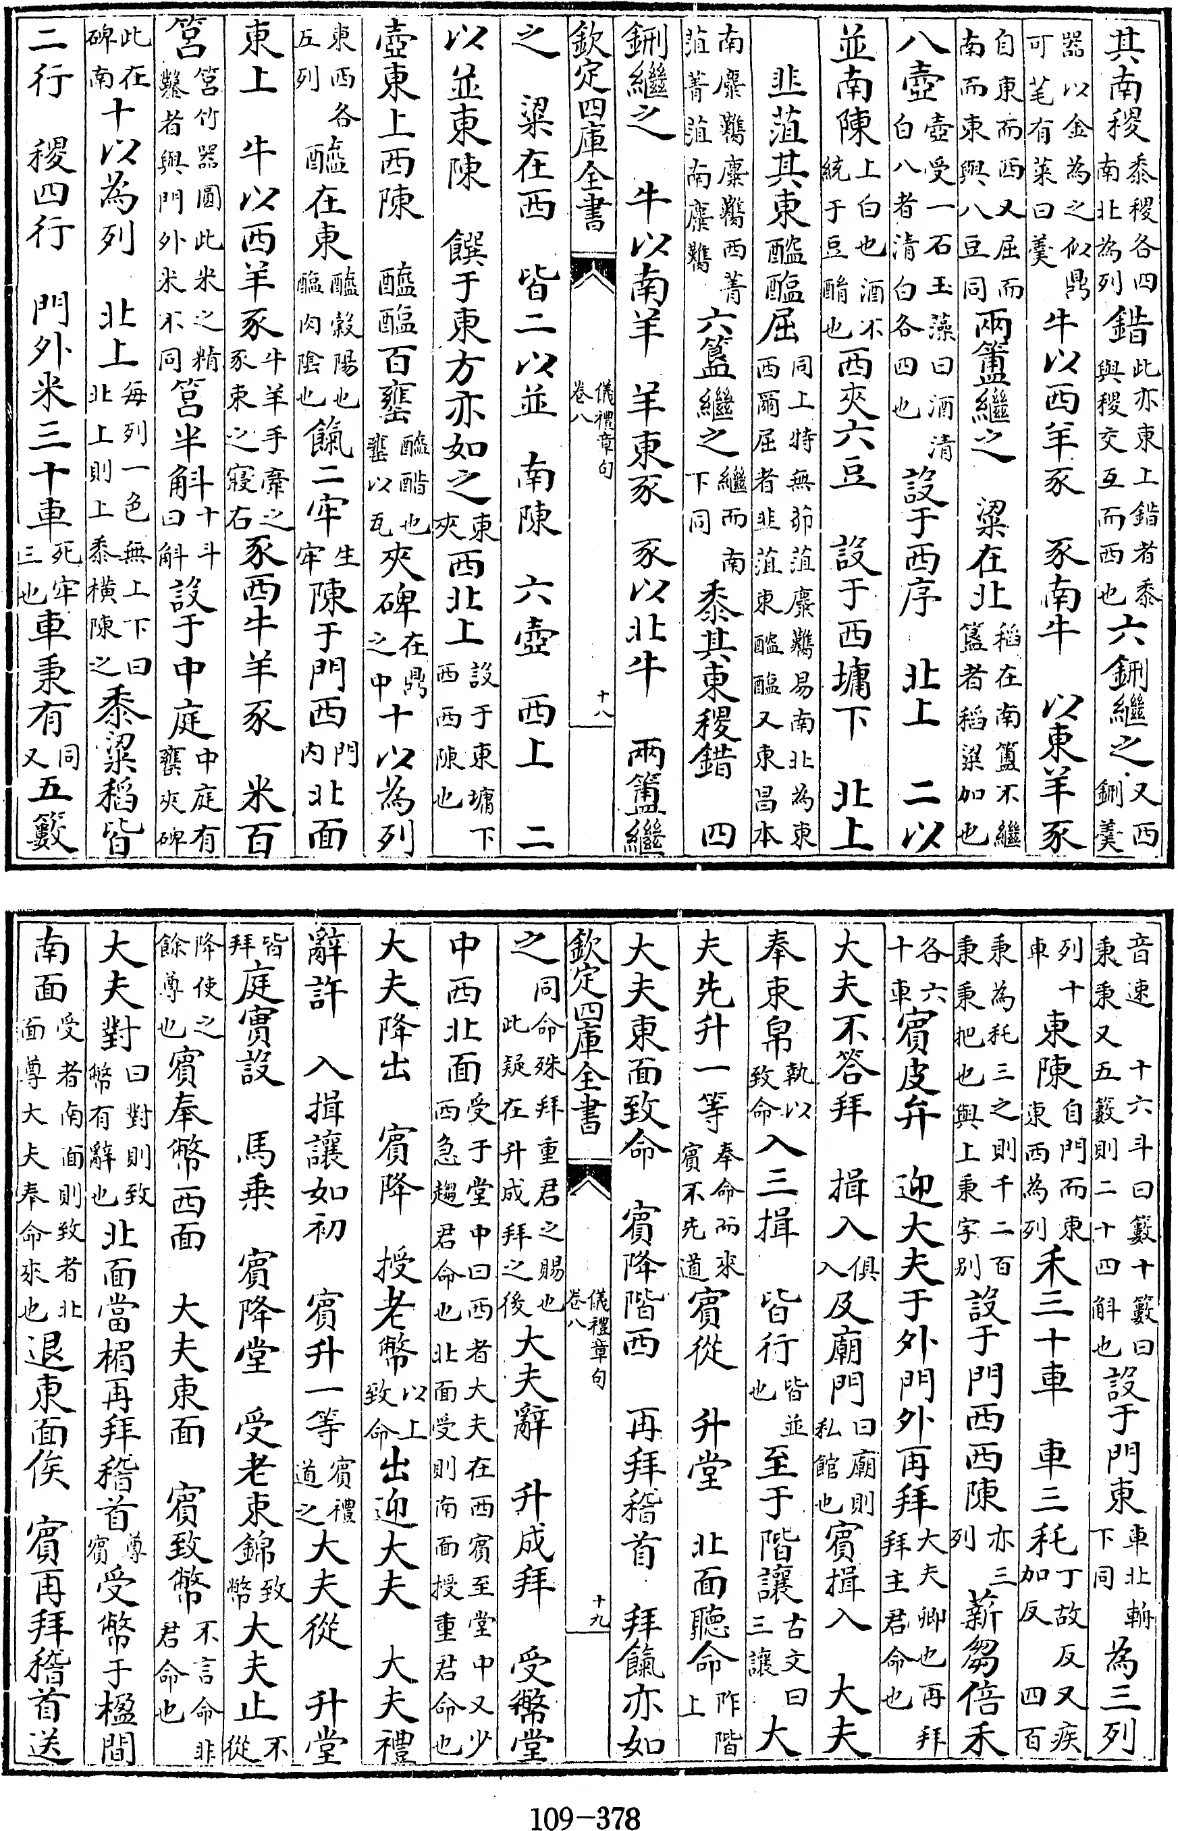 其南稷黍稷各四南北為列錯此亦東上錯者黍與稷交互而西也六鉶繼之又西鉶羹
器以金為之似鼎可芼有菜曰羹牛以西羊豕　豕南牛　以東羊豕
自東而西又屈而南而東與八豆同兩簠繼之　粱在北稻在南簠不繼簋者稻粱加也
八壺壺受一石玉藻曰酒清白八者清白各四也設于西序　北上　二以
並南陳上白也酒不統于豆醑也西夾六豆　設于西墉下　北上
韭菹其東醓醢屈同上特無茆菹麋臡易南北為東西爾屈者韭菹東醓醢又東昌本
南麋臡麋臡西菁菹菁菹南麋臡六簋繼之繼而南下同黍其東稷錯　四
鉶繼之　牛以南羊　羊東豕　豕以北牛　兩簠繼
欽定四庫全書　儀禮章句卷八　十八
之　粱在西　皆二以並　南陳　六壺　西上　二
以並東陳　饌于東方亦如之東夾西北上設于東墉下西西陳也
壺東上西陳　醯醢百罋醯醋也罋以瓦夾碑在鼎之中十以為列
東西各五列醯在東醯穀陽也醢肉陰也餼二牢生牢陳于門西門內北面
東上　牛以西羊豕牛羊手牽之豕束之寢右豕西牛羊豕　米百
筥筥竹器圓此米之精鑿者與門外米不同筥半斛十斗曰斛設于中庭中庭有罋夾碑
此在碑南十以為列　北上每列一色無上下曰北上則上黍橫陳之黍粱稻皆
二行　稷四行　門外米三十車死牢三也車秉有同又五籔
音速　十六斗曰籔十籔曰秉秉又五籔則二十四斛也設于門東車北輈下同為三列
列十車東陳自門而東東西為列禾三十車　車三秅丁故反又疾加反　四百
秉為秅三之則千二百秉秉把也與上秉字別設于門西西陳亦三列薪芻倍禾
各六十車賓皮弁　迎大夫于外門外再拜大夫卿也再拜拜主君命也
大夫不答拜　揖入俱入及廟門曰廟則私館也賓揖入　大夫
奉束帛執以致命入三揖　皆行皆並也至于階讓古文曰三讓大
夫先升一等奉命而來賓不先道賓從　升堂　北面聽命阼階上
大夫東面致命　賓降階西　再拜稽首　拜餼亦如
欽定四庫全書　儀禮章句卷八　十九
之同命殊拜重君之賜也此疑在升成拜之後大夫辭　升成拜　受幣堂
中西北面受于堂中曰西者大夫在西賓至堂中又少西急趨君命也北面受則南面授重君命也
大夫降出　賓降　授老幣以上致命出迎大夫　大夫禮
辭許　入揖讓如初　賓升一等賓禮道之大夫從　升堂
皆拜庭實設　馬乗　賓降堂　受老束錦致幣大夫止不從
降使之餘尊也賓奉幣西面　大夫東面　賓致幣不言命非君命也
大夫對曰對則致幣有辭也北面當楣再拜稽首尊賓受幣于楹間
南面受者南面則致者北面尊大夫奉命來也退東面俟　賓再拜稽首送
109-378